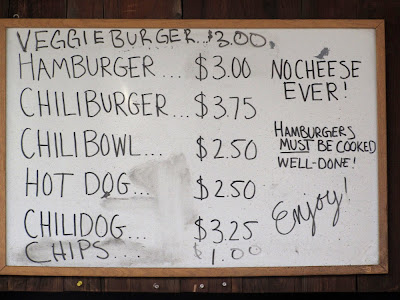 VEGGIEBURGER...$3.00.
HAMBURGER... $3.00
CHILIBURGER... $3.75
CHILIBOWL... $2.50
HOT DOG... $2.50
CHILIDOG... $3.25
CHIPS.... $1.00
NO CHEESE
EVER!
HAMBURGERS
MUST BE COOKED
WELL-DONE!
Enjoy!